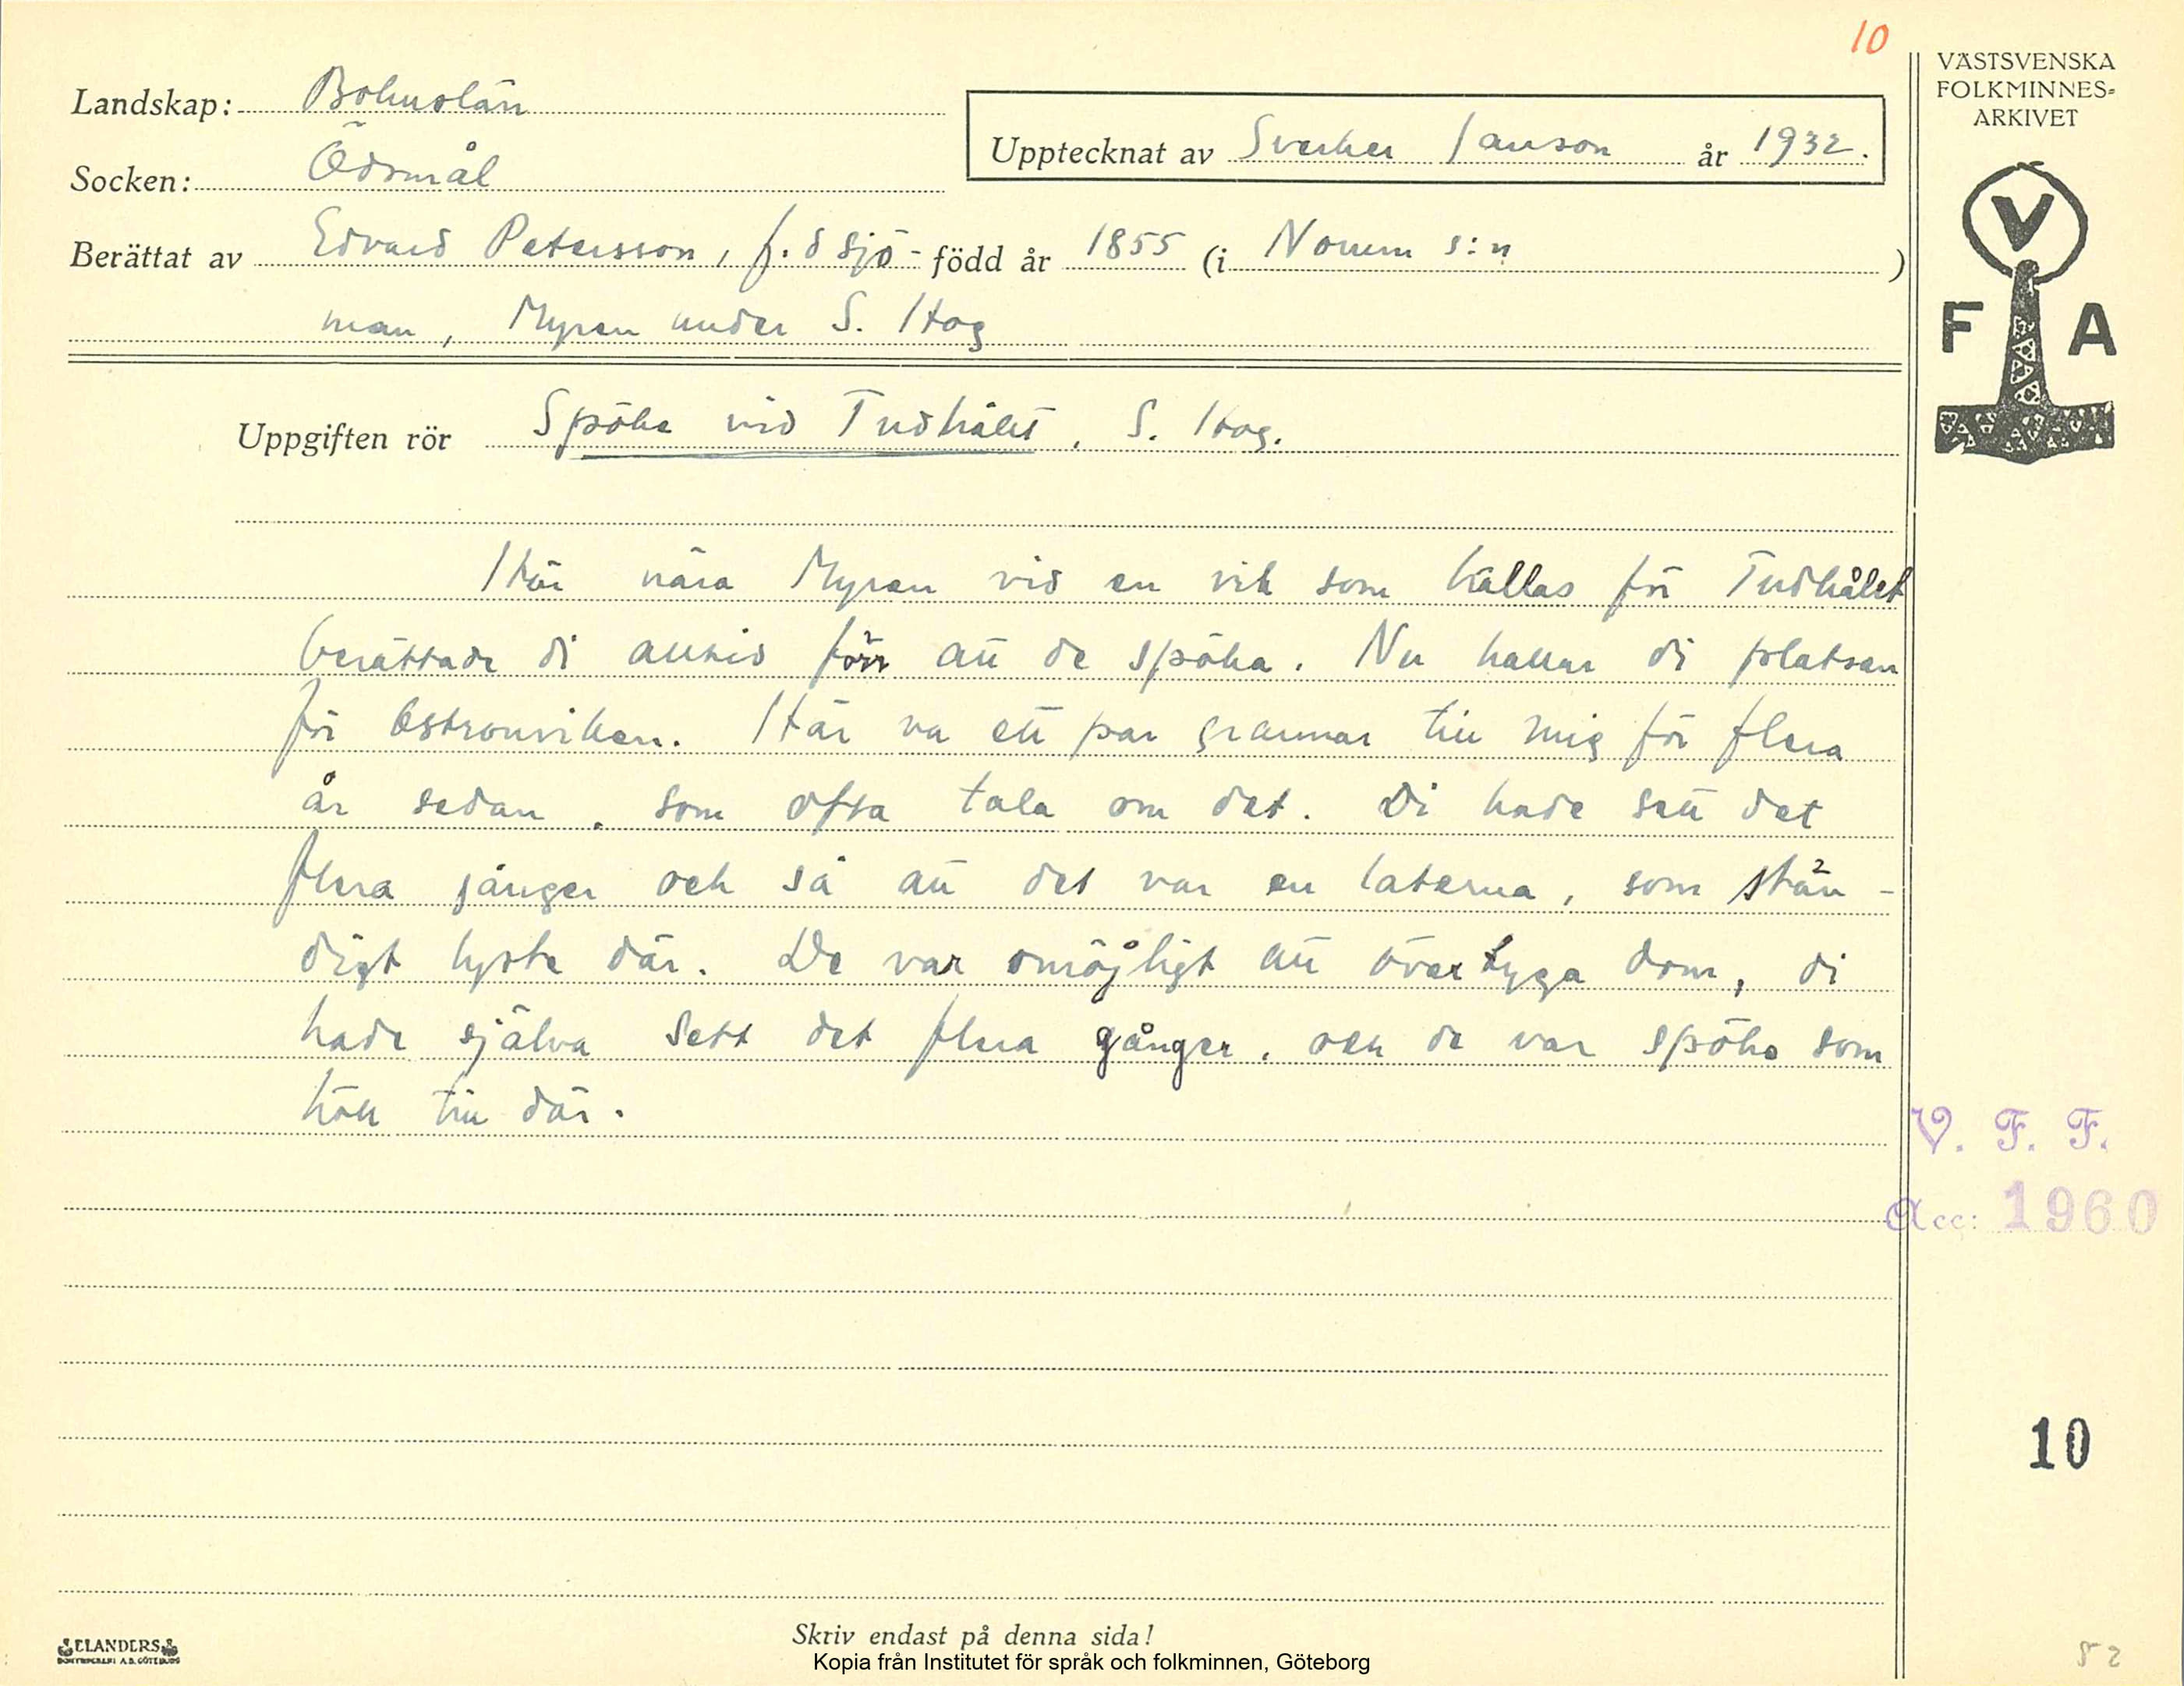 10
VÄSTSVENSKA
FOLKMINNES-
ARKIVET
Landskap: Bohuslän
Upptecknat av Sverker Janson år 1932.
Socken: Ödsmål
Berättat av Edvard Petersson, f. d sjö- född år 1855 (i Norum s:n)
man, Myren under S. Hog
V
F A
Uppgiften rör Spöke vid Tudhålet, S. Hog.
Här nära Myren vid en vik som kallas för Tudhålet
berättade di alltid förr att de spöka. Nu kallar di platsen
för Ostronviken. Här va ett par grannar till mig för flera
år sedan, som ofta tala om det. Di hade sett det
flera gånger och sa att det var en laterna, som stän-
digt lyste där. De var omöjligt att övertyga dom, di
hade själva sett det flera gånger, och de var spöke som
höll till där.
V. F. F.
Acc: 1960
10
ELANDERS
BOKTRYCKERI A.B. GÖTEBORG
Skriv endast på denna sida!
Kopia från Institutet för språk och folkminnen, Göteborg
52